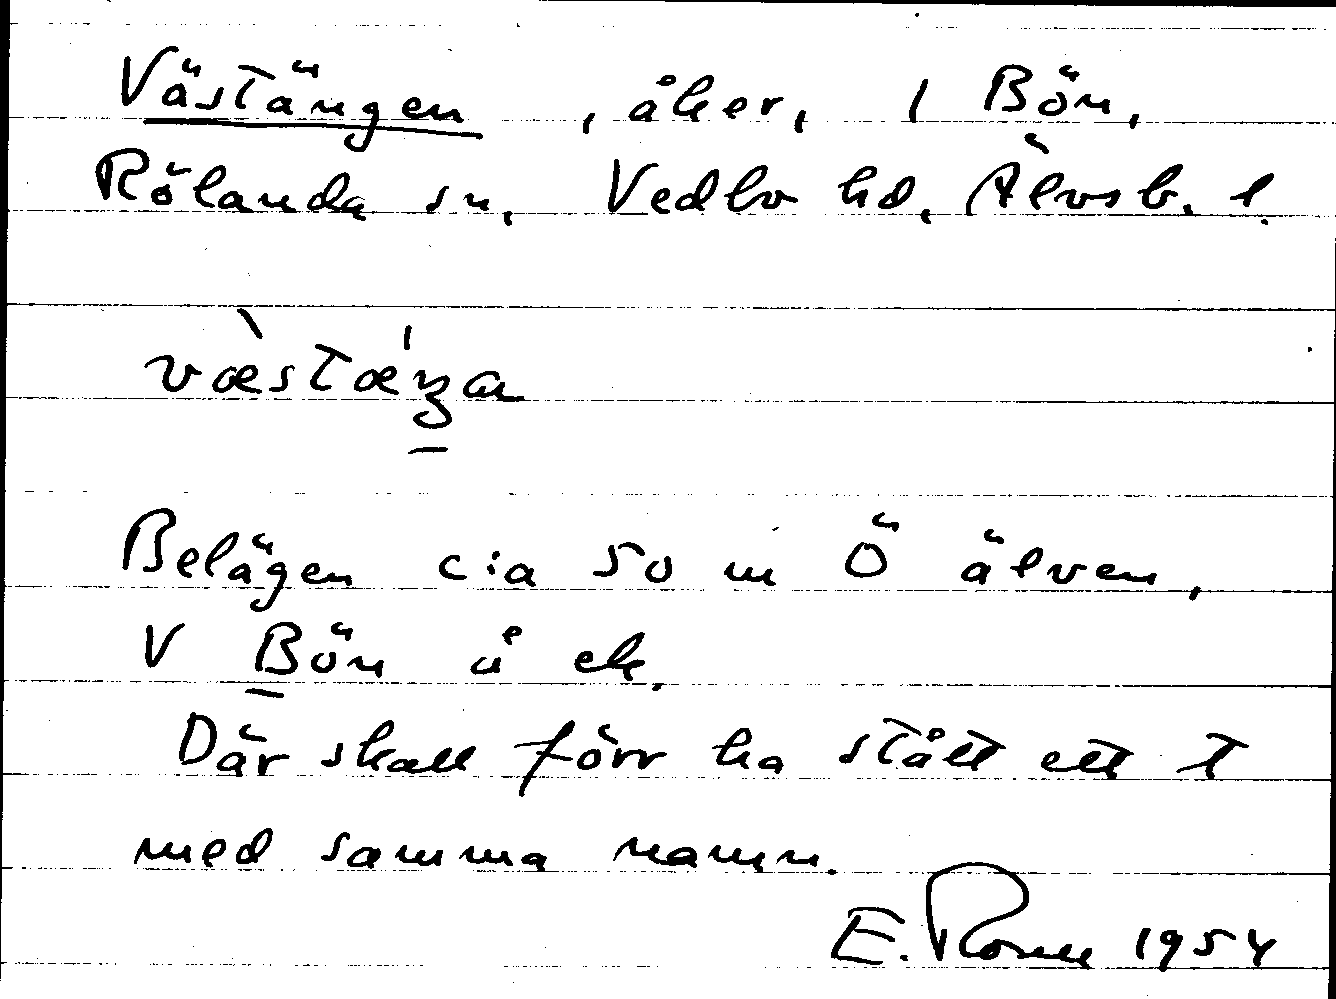 Västängen, åker, 1 Bön,
Rölanda sn, Vedbo hd, Älvsb. l.
væ̀stǽŋa
Belägen c:a 50 m Ö älven,
V Bön å ek.
Där skall förr ha stått ett t
med samma namn.
E. 1954